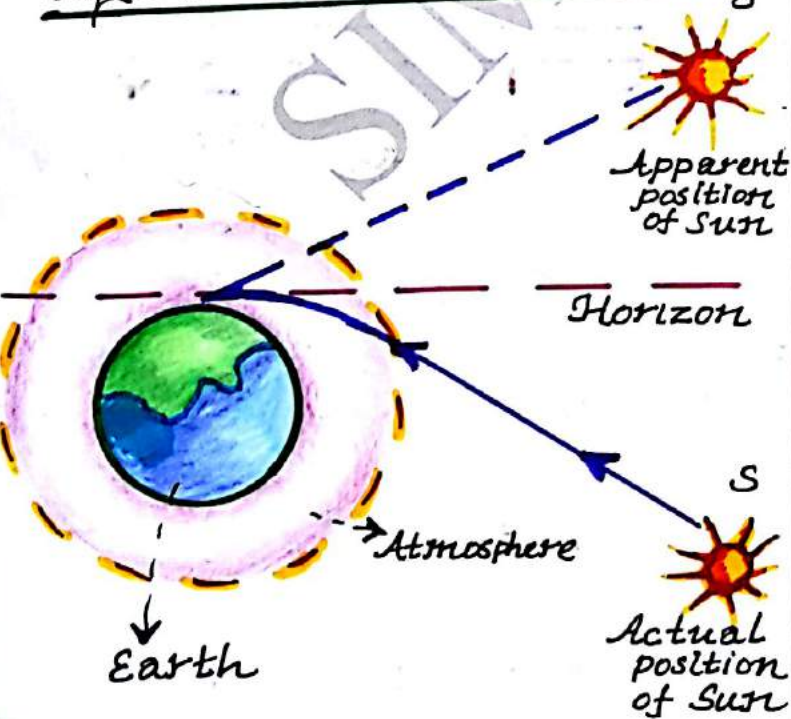 SIN
Apparent
position
of Sun
Horizon
S
Atmosphere
Earth
Actual
position
of Sun